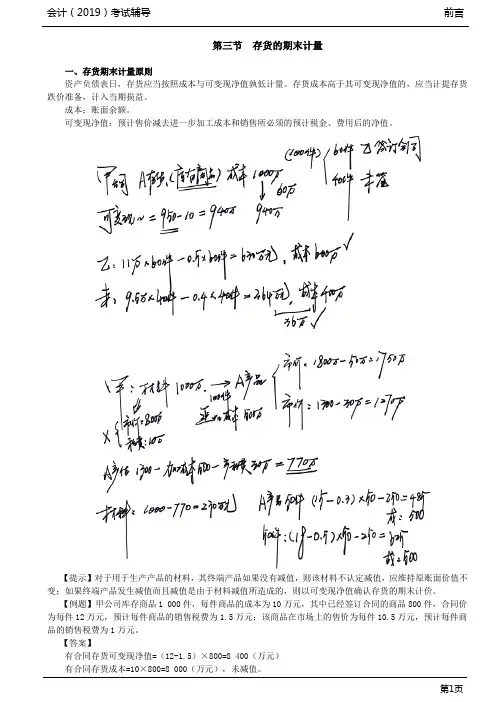 会计（2019）考试辅导 前言
第三节 存货的期末计量
一、存货期末计量原则
资产负债表日，存货应当按照成本与可变现净值孰低计量。存货成本高于其可变现净值的，应当计提存货
跌价准备，计入当期损益。
成本：账面余额。
可变现净值：预计售价减去进一步加工成本和销售所必须的预计税金、费用后的净值。
(100件) 60件 乙签订合同
甲公司 A存货(库存商品) 成本1000万
60万 40件 未签
可变现～=950-10=940万 940万
乙：11万×60件-0.5×60件=630万元，成本600万√
未：9.5万×40件-0.4×40件=364万元，成本400万
36万√
市价：1800万-50万=1750万
甲：材料1000万 → A产品
100件
市价=800万
税费：10万
市价：1300-30万=1270万
A产品1300-加工成本500-30万=770万
材料：1000-770=230万元
A产品50件(15-0.3)×50-250=485
成：500
50件：(18-0.5)×50-250=625
成=500
【提示】对于用于生产产品的材料，其终端产品如果没有减值，则该材料不认定减值，应维持原账面价值不
变；如果终端产品发生减值而且减值是由于材料减值所造成的，则以可变现净值确认存货的期末计价。
【例题】甲公司库存商品1 000件，每件商品的成本为10万元，其中已经签订合同的商品800件，合同价
为每件12万元，预计每件商品的销售税费为1.5万元；该商品在市场上的售价为每件10.5万元，预计每件商
品的销售税费为1万元。
【答案】
有合同存货可变现净值=（12-1.5）×800=8 400（万元）
有合同存货成本=10×800=8 000（万元），未减值。
第1页